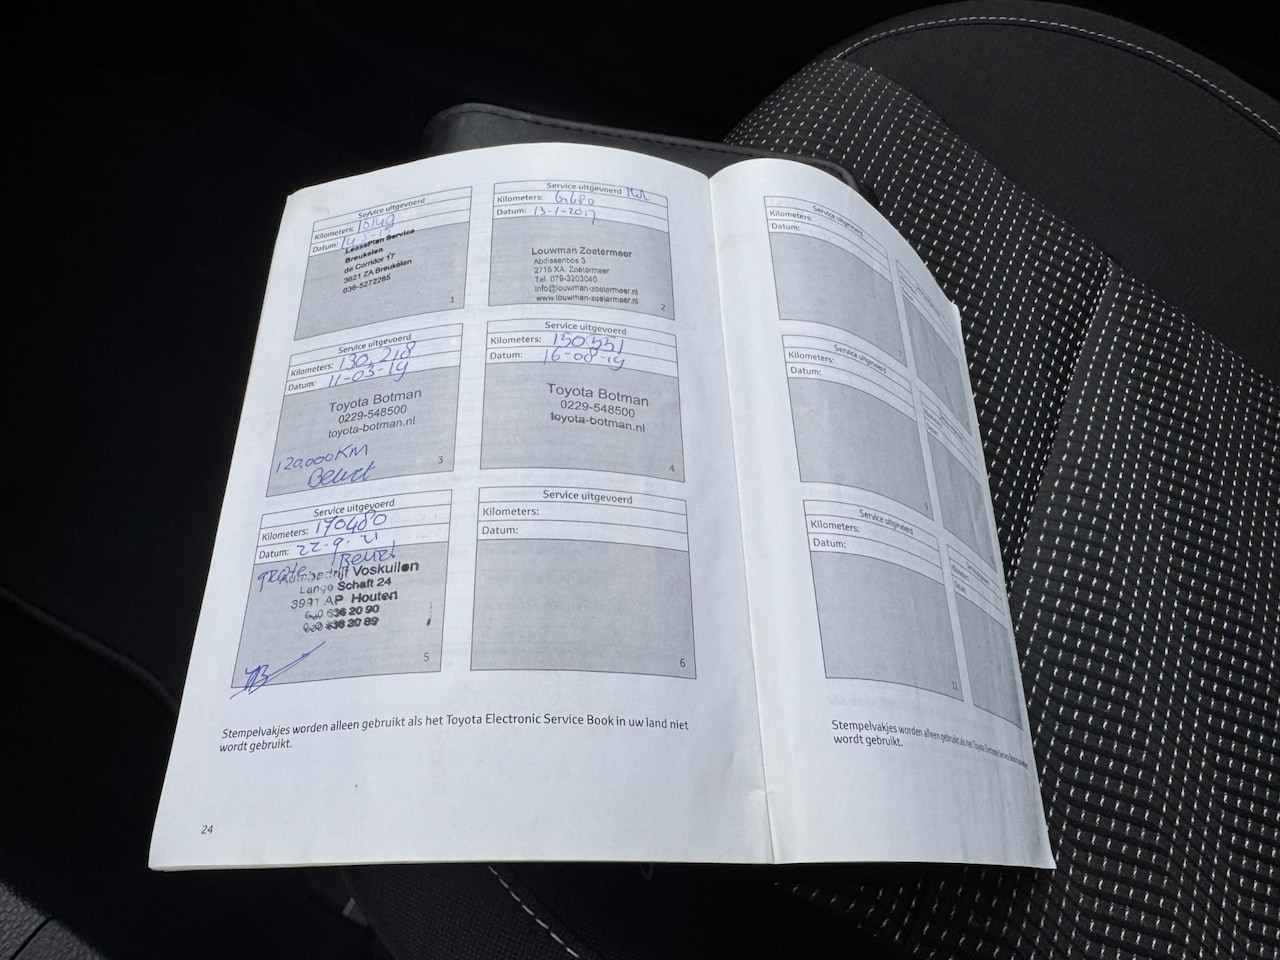 Service uitgevoerd
Kilometers: 15149
Datum:
LeasePlan Service
Breukelen
de Corridor 17
3621 ZA Breukelen
036-5272265
1
Service uitgevoerd
Kilometers:
Datum: 13-1-2017
Louwman Zoetermeer
Abdissenbos 3
2715 XA Zoetermeer
Tel. 079-3203040
info@louwman-zoetermeer.nl
www.louwman-zoetermeer.nl
2
Service uitgevoerd
Kilometers: 130,218
Datum: 11-03-19
Toyota Botman
0229-548500
toyota-botman.nl
120,000 KM
Beurt
3
Service uitgevoerd
Kilometers: 150.551
Datum: 16-08-19
Toyota Botman
0229-548500
toyota-botman.nl
4
Service uitgevoerd
Kilometers: 170480
Datum: 22-9-21
grote Beurt
Autobedrijf Voskuilen
Lange Schaft 24
3991 AP Houten
636 20 90
636 20 89
5
Service uitgevoerd
Kilometers:
Datum:
6
Stempelvakjes worden alleen gebruikt als het Toyota Electronic Service Book in uw land niet
wordt gebruikt.
24
Service uitgevoerd
Kilometers:
Datum:
Service uitgevoerd
Kilometers:
Datum:
9
Service uitgevoerd
Kilometers:
Datum:
11
Stempelvakjes worden alleen gebruikt als het Toyota Electronic Service Book in
wordt gebruikt.